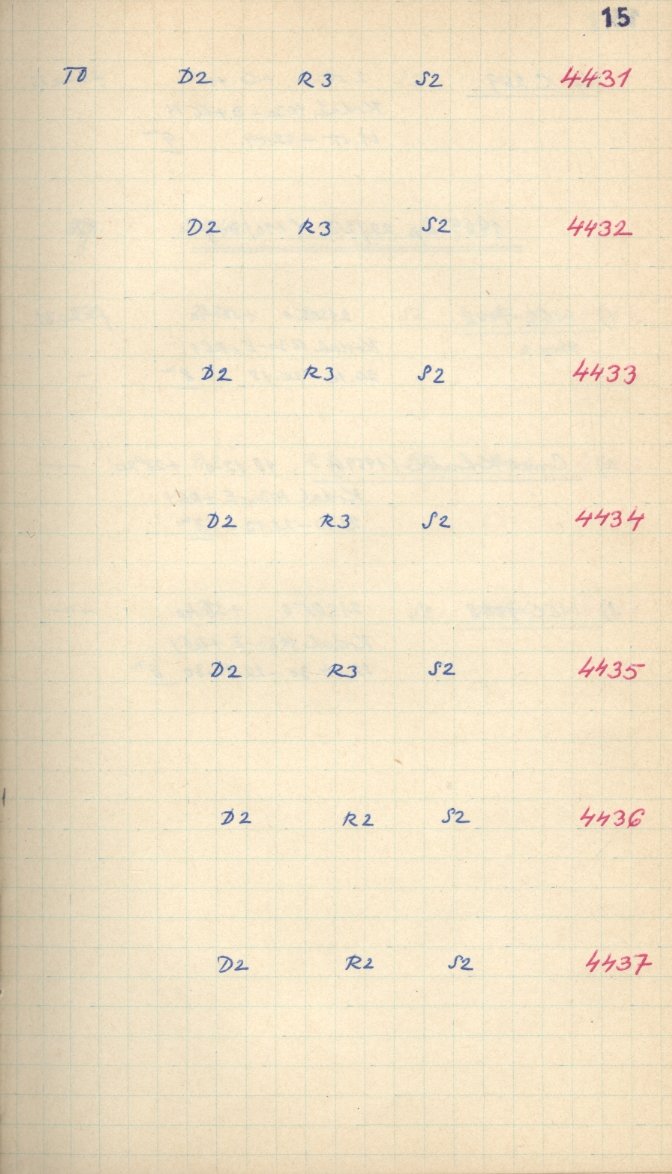 15
T0 D2 R3 S2 4431
D2 R3 S2 4432
D2 R3 S2 4433
D2 R3 S2 4434
D2 R3 S2 4435
D2 R2 S2 4436
D2 R2 S2 4437